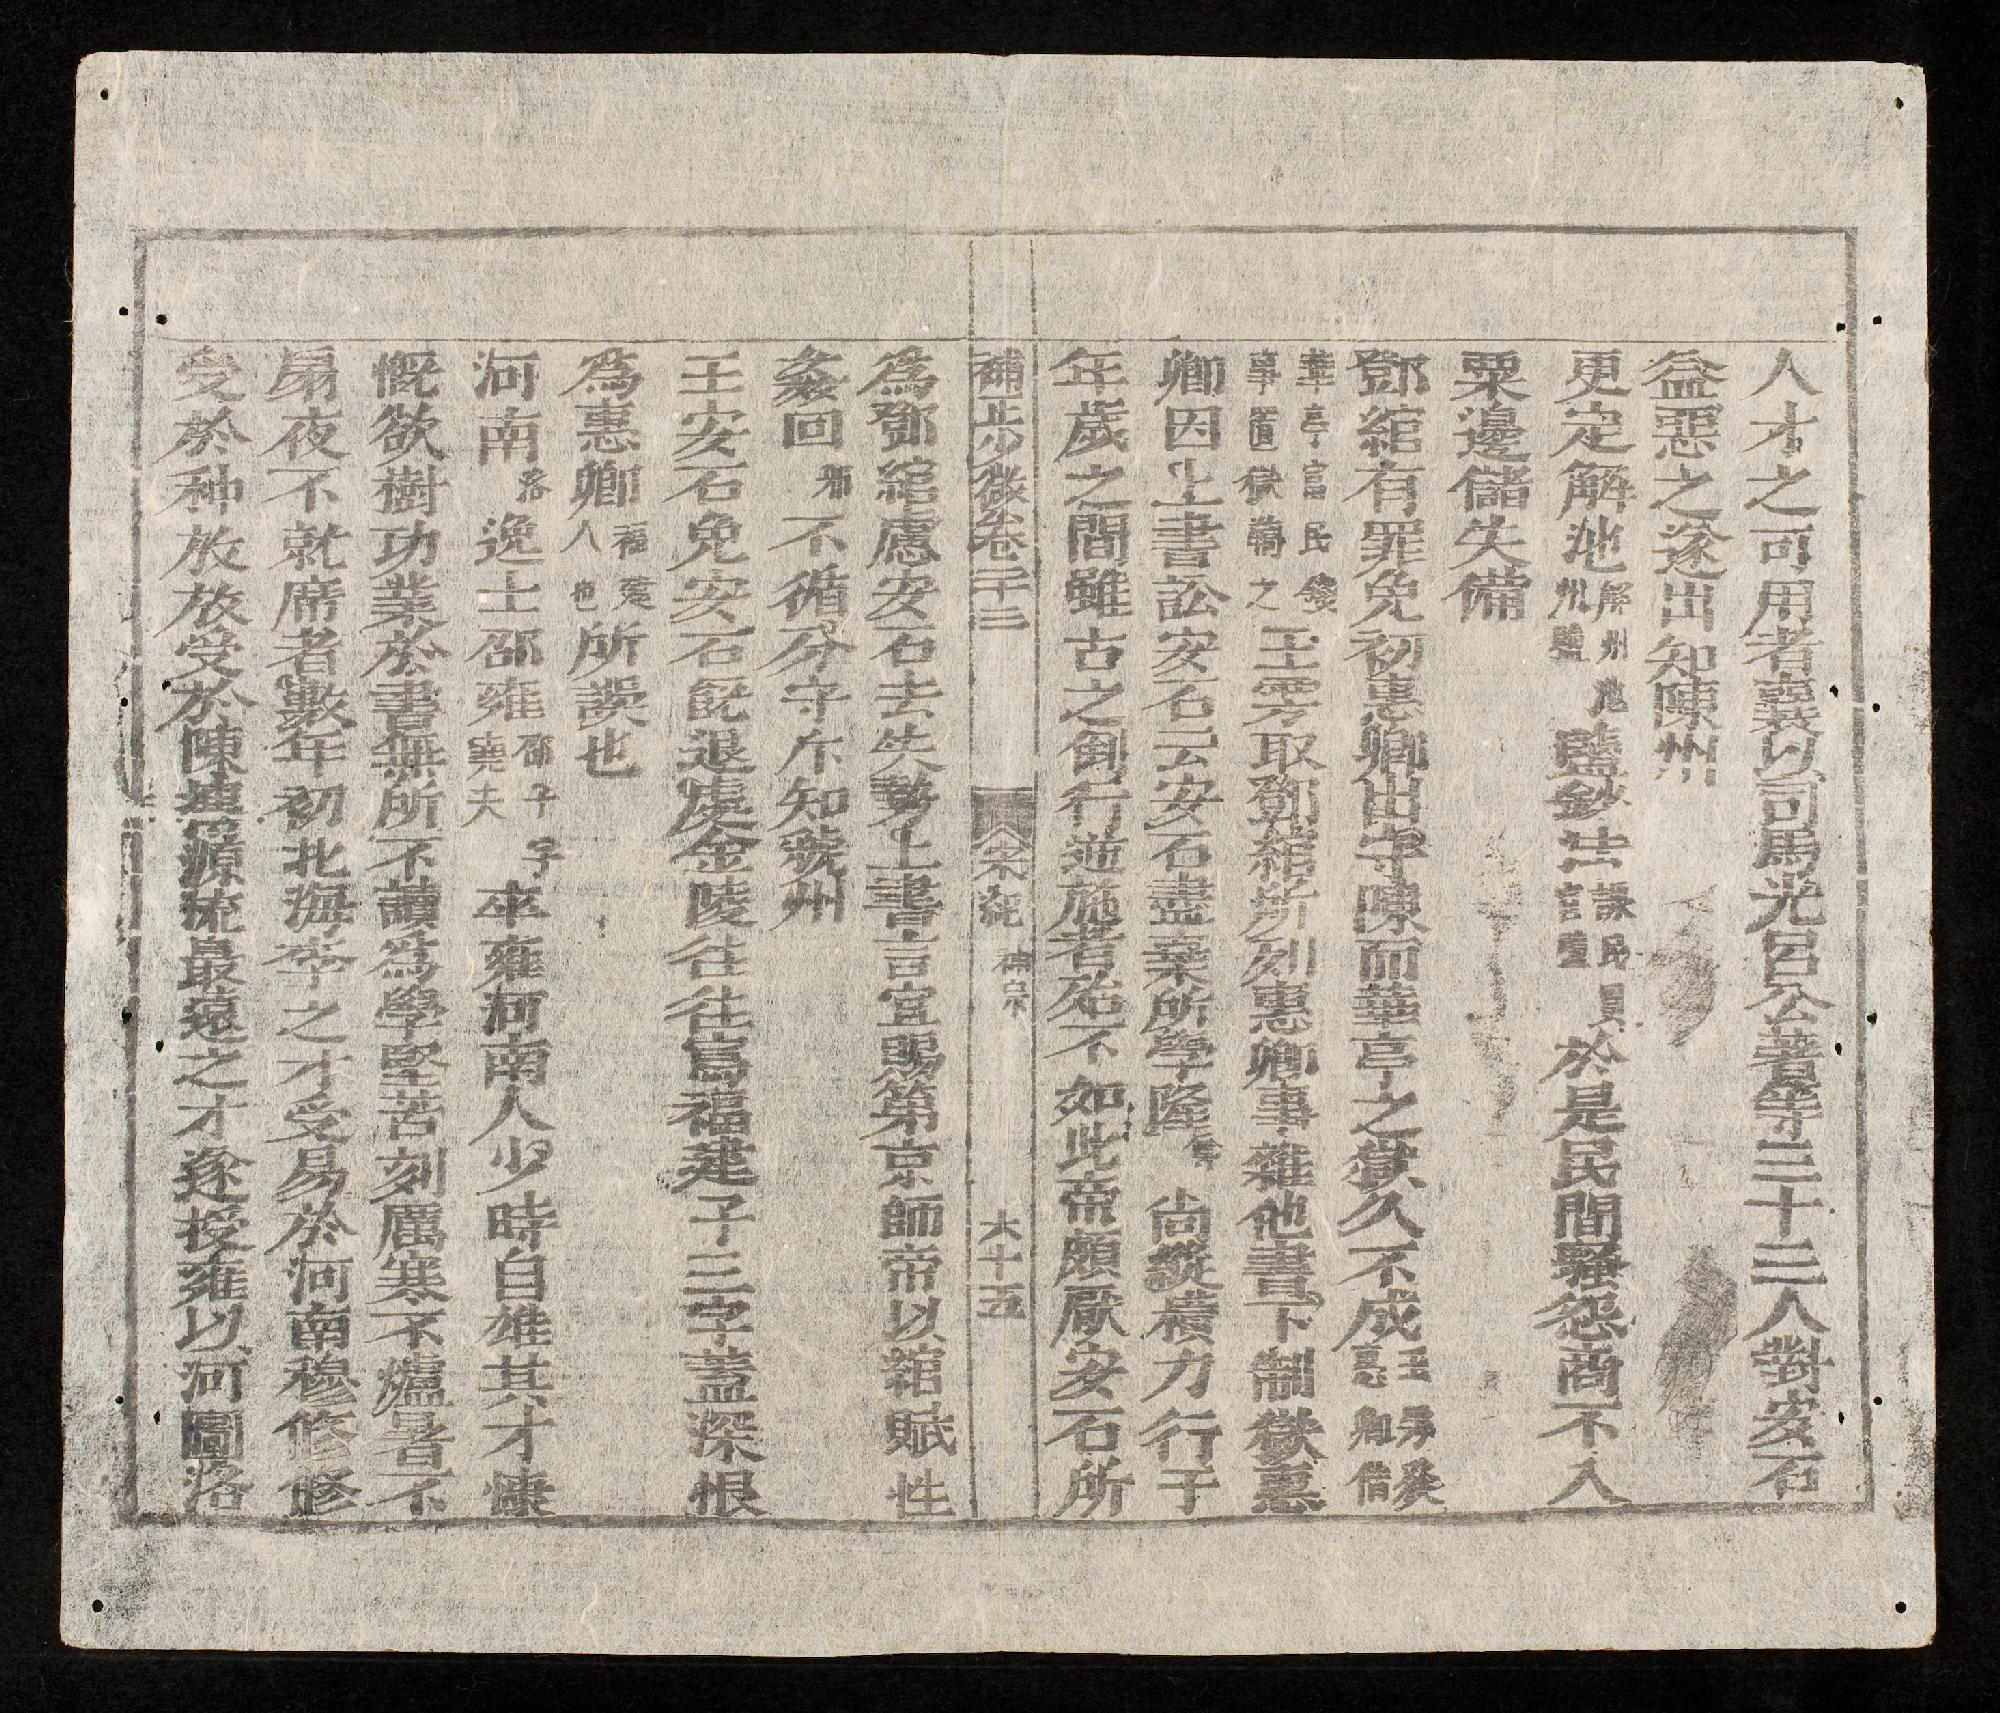 人才之可用者襄以司馬光呂公著等三十三人對安石
益惡之遂出知陳州
更定解池解州池州鹽鹽鈔法於是民間騷怨商不入
粟邊儲失備
鄧綰有罪免初惠卿出守陳而華亭之獄久不成王雱發惠卿借
華亭富民錢事置獄鞫之王雱取鄧綰所列惠卿事雜他書下制獄惠
卿因上書訟安石云安石盡棄所學隆尚縱橫力行于
年歲之間雖古之倒行逆施者殆不如此帝頗厭安石所
補正少微卷二十三 宋紀 神宗 六十五
為鄧綰慮安石去失勢上書言宜賜第京師帝以綰賦性
姦回邪不循分守斥知虢州
王安石免安石既退處金陵往往寫福建子三字蓋深恨
為惠卿福建人也所誤也
河南洛逸士邵雍邵子字堯夫卒雍河南人少時自雄其才慷
慨欲樹功業於書無所不讀為學堅苦刻厲寒不爐暑不
扇夜不就席者數年初北海李之才受易於河南穆修修
受於种放放受於陳摶源流最遠之才遂授雍以河圖洛